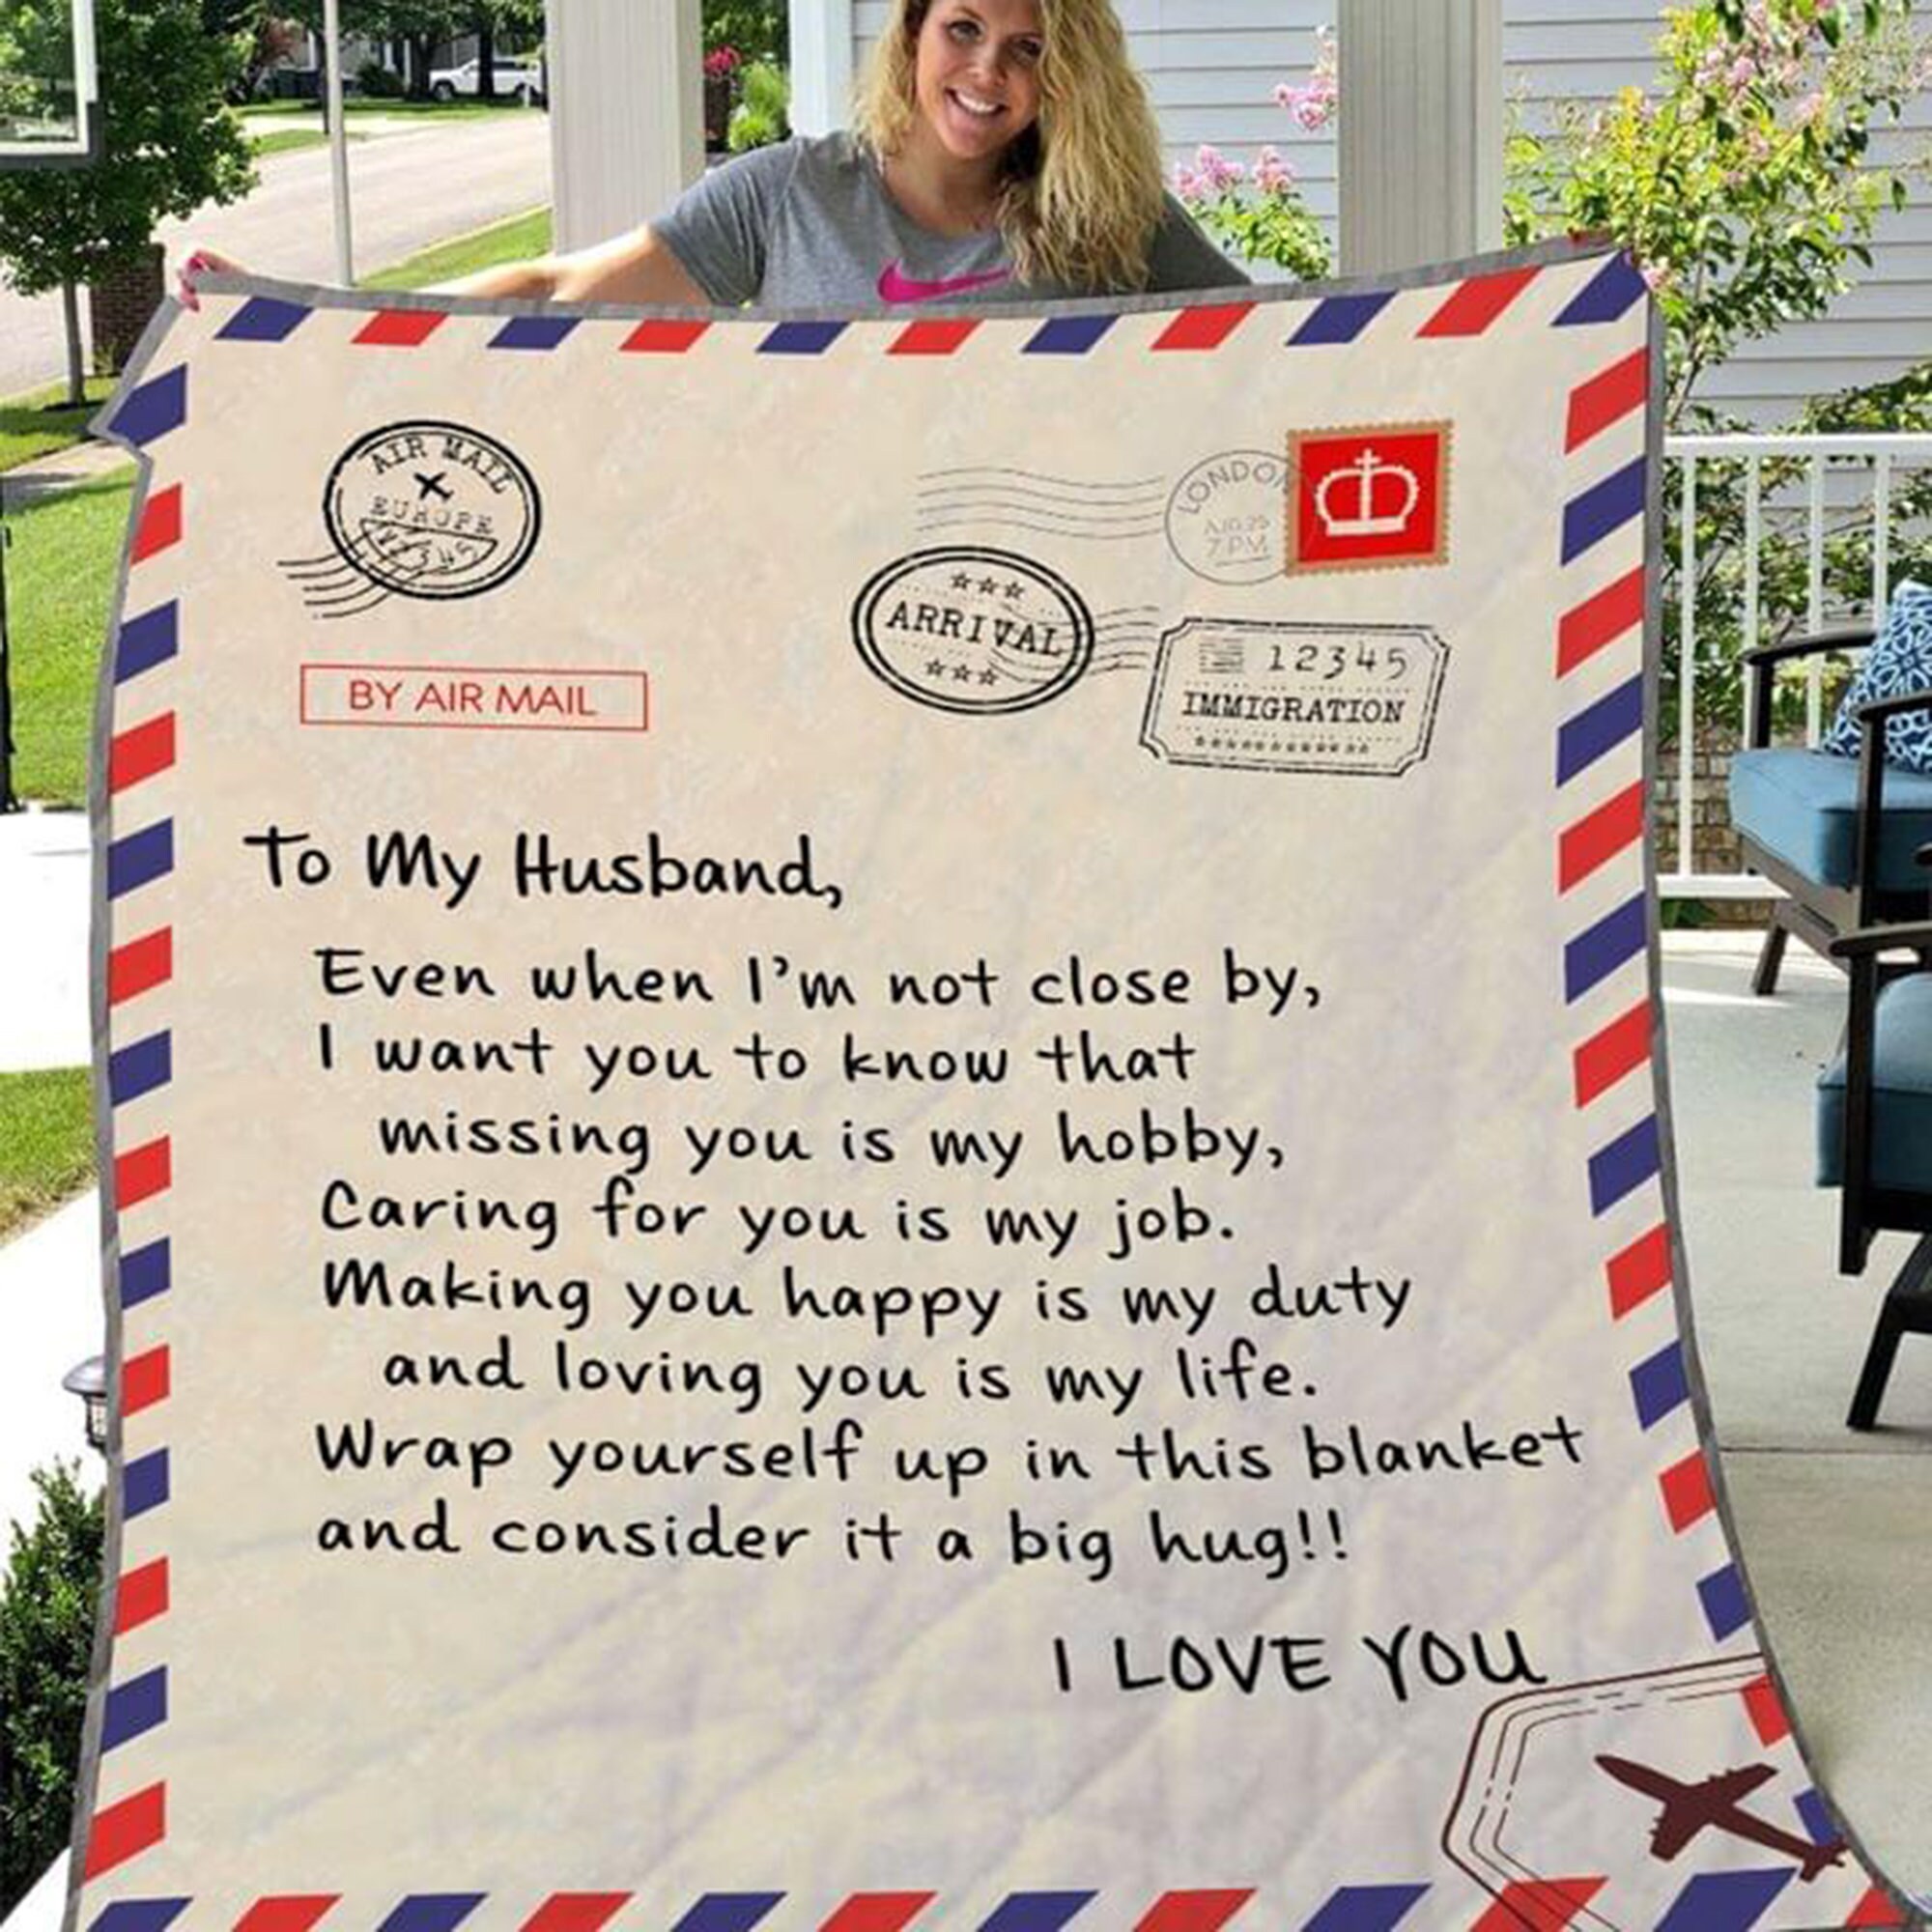 AIR MAIL
EUROPE
12345
LONDON
7 PM
ARRIVAL
12345
IMMIGRATION
BY AIR MAIL
To My Husband,
Even when I'm not close by,
I want you to know that
missing you is my hobby,
Caring for you is my job.
Making you happy is my duty
and loving you is my life.
Wrap yourself up in this blanket
and consider it a big hug!!
I LOVE YOU